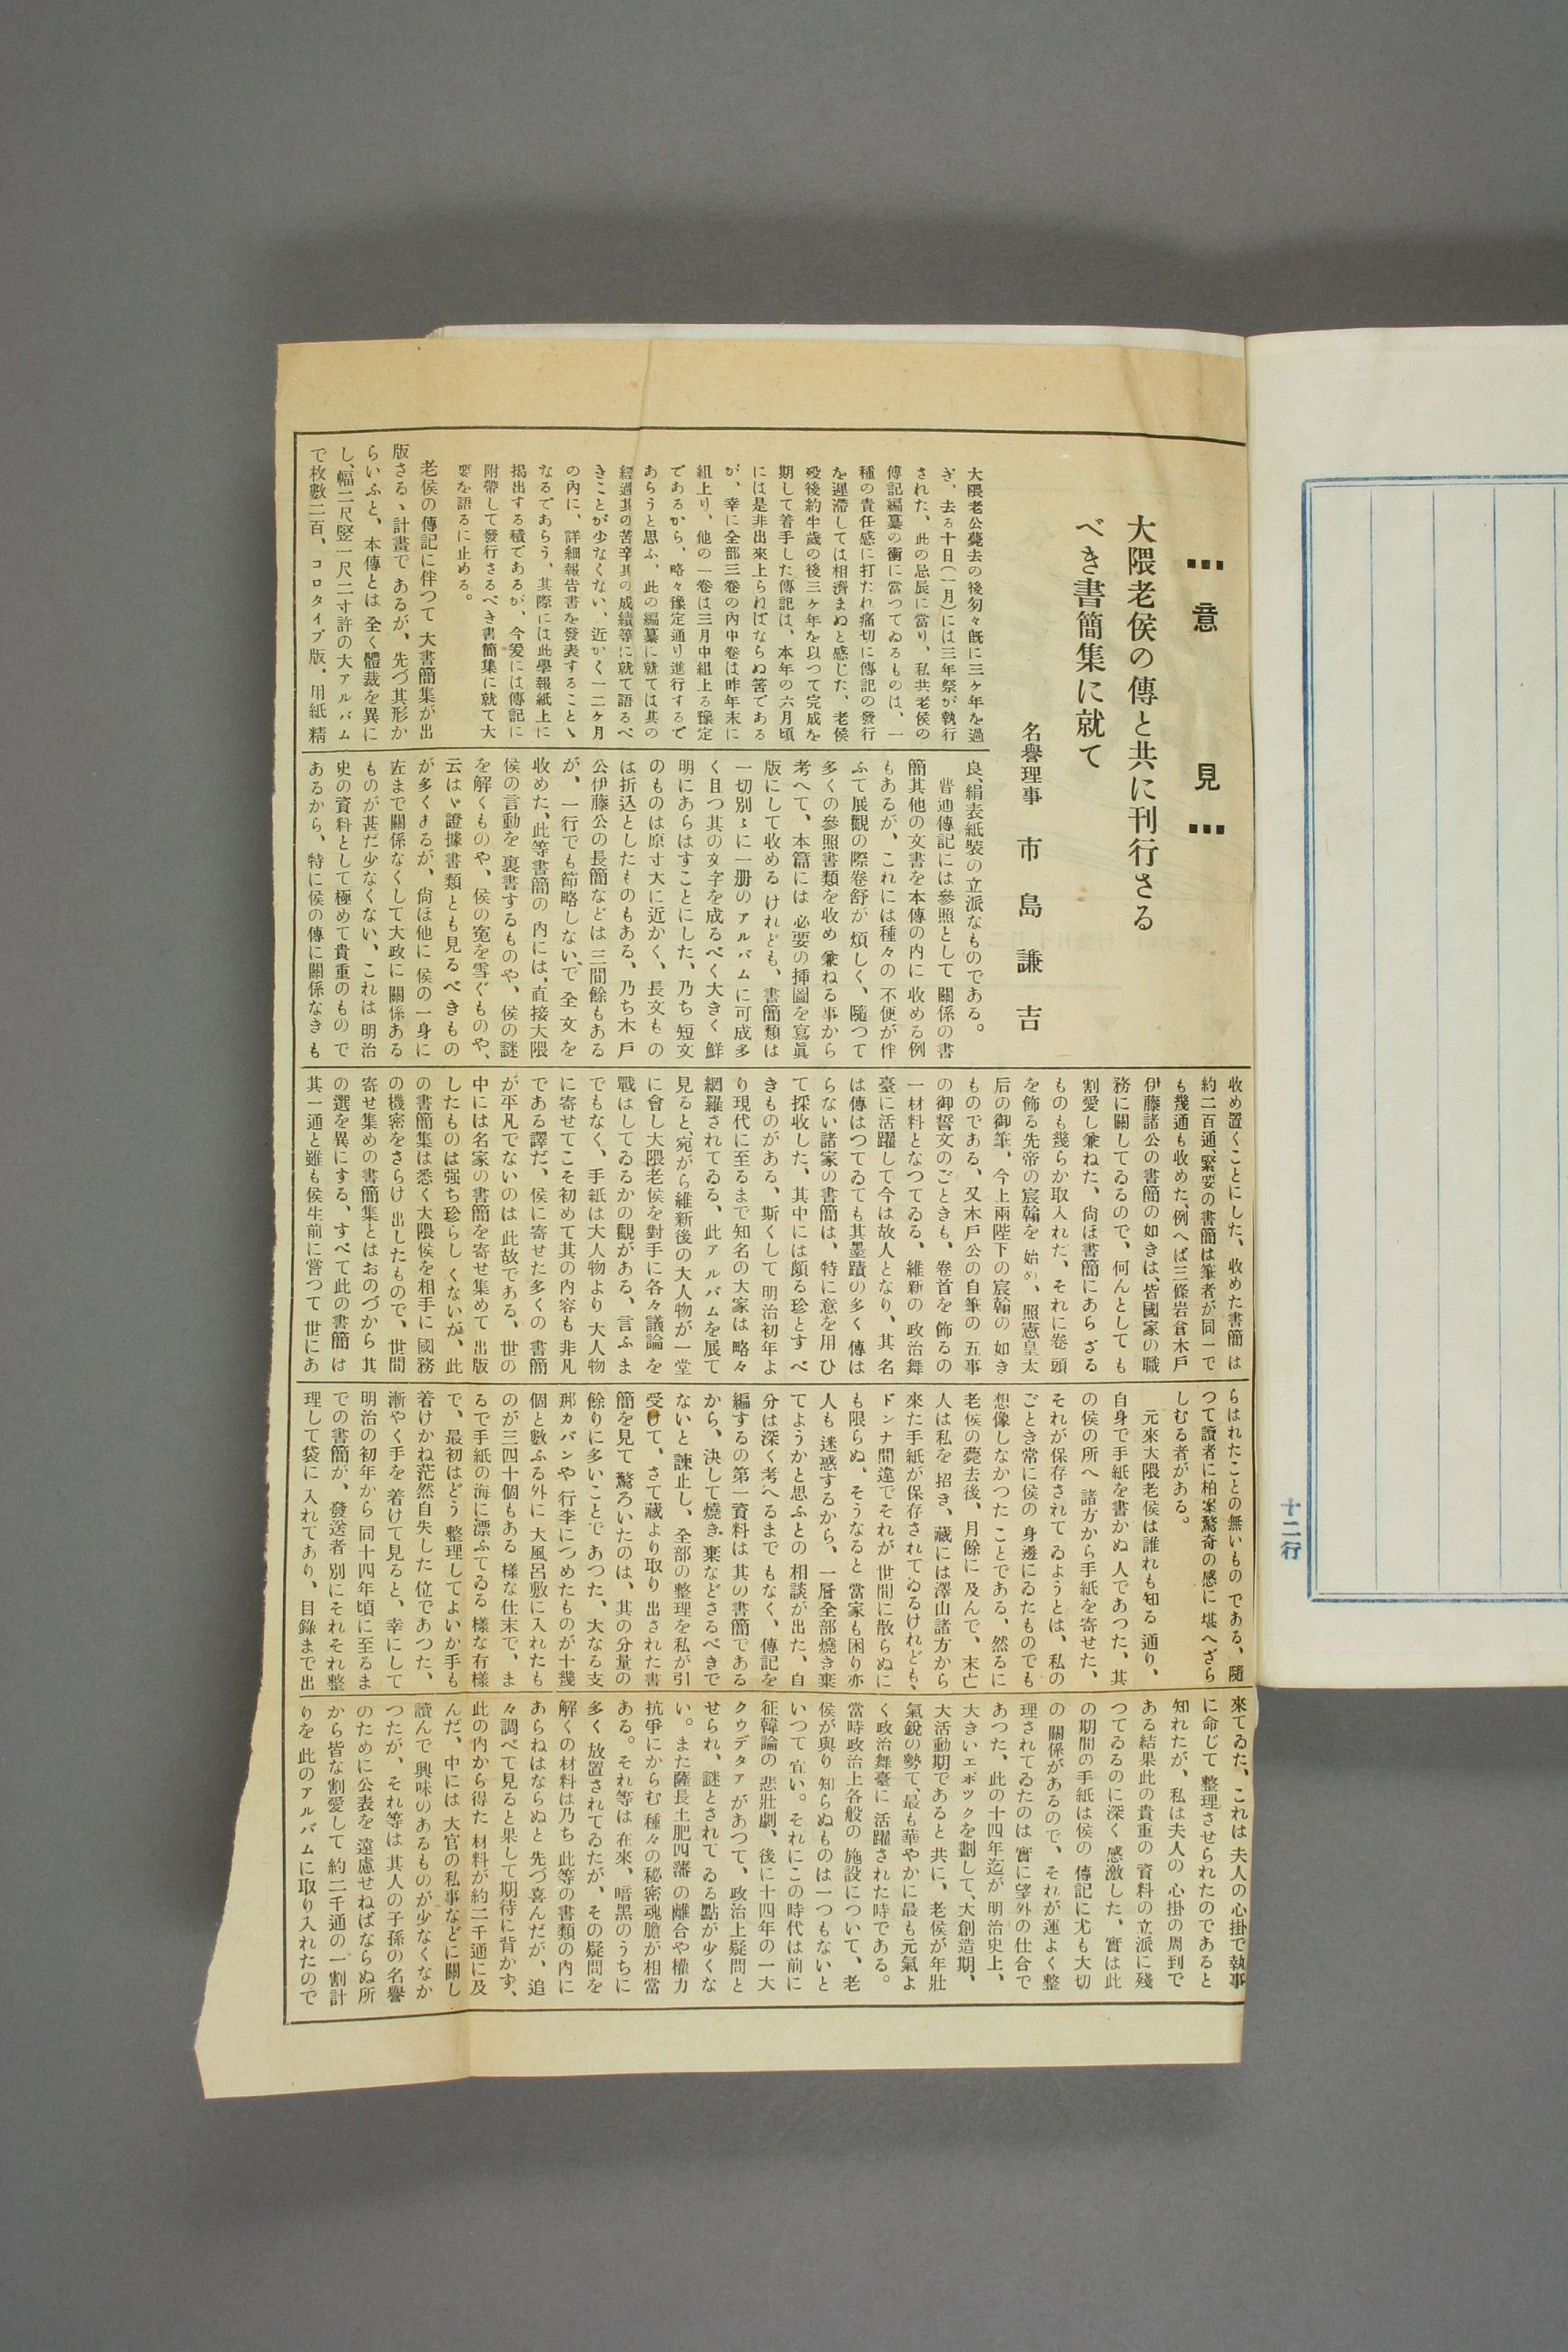 意見
大隈老侯の傳と共に刊行さる
べき書簡集に就て
名譽理事 市島謙吉
大隈老公薨去の後匆々既に三ケ年を過
ぎ、去る十日(一月)には三年祭が執行
された、此の忌辰に當り、私共老侯の
傳記編纂の衝に當つてゐるものは、一
種の責任感に打たれ痛切に傳記の發行
を遲滯しては相濟まぬと感じた、老侯
歿後約半歲の後三ケ年を以つて完成を
期して着手した傳記は、本年の六月頃
には是非出來上らねばならぬ筈である
が、幸に全部三卷の內中卷は昨年末に
組上り、他の一卷は三月中組上る豫定
であるから、略々豫定通り進行するで
あらうと思ふ、此の編纂に就ては其の
經過其の苦辛其の成績等に就て語るべ
きことが少なくない、近かく一二ケ月
の內に、詳細報告書を發表すること丶
なるであらう、其際には此學報紙上に
揭出する積であるが、今爰には傳記に
附帶して發行さるべき書簡集に就て大
要を語るに止める。
老侯の傳記に伴つて大書簡集が出
版さる丶計畫であるが、先づ其形か
らいふと、本傳とは全く體裁を異に
し、幅二尺竪一尺二寸許の大アルバム
で枚數二百、コロタイプ版、用紙精
良、絹表紙裝の立派なものである。
普通傳記には參照として關係の書
簡其他の文書を本傳の內に收める例
もあるが、これには種々の不便が伴
ふて展觀の際卷舒が煩しく、隨つて
多くの參照書類を收め兼ねる事から
考へて、本篇には必要の挿圖を寫眞
版にして收めるけれども、書簡類は
一切別々に一册のアルバムに可成多
く且つ其の文字を成るべく大きく鮮
明にあらはすことにした、乃ち短文
のものは原寸大に近かく、長文もの
は折込としたものもある、乃ち木戶
公伊藤公の長簡などは三間餘もある
が、一行でも節略しないで全文を
收めた、此等書簡の內には、直接大隈
侯の言動を裏書するものや、侯の謎
を解くものや、侯の寃を雪ぐものや、
云はゞ證據書類とも見るべきもの
が多くまるが、尙ほ他に侯の一身に
左まで關係なくして大政に關係ある
ものが甚だ少なくない、これは明治
史の資料として極めて貴重のもので
あるから、特に侯の傳に關係なきも
收め置くことにした、收めた書簡は
約二百通、緊要の書簡は筆者が同一で
も幾通も收めた、例へば三條岩倉木戶
伊藤諸公の書簡の如きは、皆國家の職
務に關してゐるので、何んとしても
割愛し兼ねた、尙ほ書簡にあらざる
ものも幾らか取入れた、それに卷頭
を飾る先帝の宸翰を始め、照憲皇太
后の御筆、今上兩陛下の宸翰の如き
ものである、又木戶公の自筆の五事
の御誓文のごときも、卷首を飾るの
一材料となつてゐる、維新の政治舞
臺に活躍して今は故人となり、其名
は傳はつてゐても其墨蹟の多く傳は
らない諸家の書簡は、特に意を用ひ
て採收した、其中には頗る珍とすべ
きものがある、斯くして明治初年よ
り現代に至るまで知名の大家は略々
網羅されてゐる、此アルバムを展て
見ると、宛がら維新後の大人物が一堂
に會し大隈老侯を對手に各々議論を
戰はしてゐるかの觀がある、言ふま
でもなく、手紙は大人物より大人物
に寄せてこそ初めて其の內容も非凡
である譯だ、侯に寄せた多くの書簡
が平凡でないのは此故である、世の
中には名家の書簡を寄せ集めて出版
したものは强ち珍らしくないが、此
の書簡集は悉く大隈侯を相手に國務
の機密をさらけ出したもので、世間
寄せ集めの書簡集とはおのづから其
の選を異にする、すべて此の書簡は
其一通と雖も侯生前に嘗つて世にあ
らはれたことの無いものである、隨
つて讀者に柏案驚奇の感に堪へざら
しむる者がある。
元來大隈老侯は誰れも知る通り、
自身で手紙を書かぬ人であつた、其
の侯の所へ諸方から手紙を寄せた、
それが保存されてゐようとは、私の
ごとき常に侯の身邊にゐたものでも
想像しなかつたことである、然るに
老侯の薨去後、月餘に及んで、未亡
人は私を招き、藏には澤山諸方から
來た手紙が保存されてゐるけれども、
ドンナ間違でそれが世間に散らぬに
も限らぬ、そうなると當家も困り亦
人も迷惑するから、一層全部燒き棄
てようかと思ふとの相談が出た、自
分は深く考へるまでもなく、傳記を
編するの第一資料は其の書簡である
から、決して燒き棄などさるべきで
ないと諫止し、全部の整理を私が引
受けて、さて藏より取り出された書
簡を見て驚ろいたのは、其の分量の
餘りに多いことであつた、大なる支
那カバンや行李につめたものが十幾
個と數ふる外に大風呂敷に入れたも
のが三四十個もある樣な仕末で、ま
るで手紙の海に漂ふてゐる樣な有樣
で、最初はどう整理してよいか手も
着けかね茫然自失した位であつた、
漸やく手を着けて見ると、幸にして
明治の初年から同十四年頃に至るま
での書簡が、發送者別にそれぞれ整
理して袋に入れてあり、目錄まで出
來てゐた、これは夫人の心掛で執事
に命じて整理させられたのであると
知れたが、私は夫人の心掛の周到で
ある結果此の貴重の資料の立派に殘
つてゐるのに深く感激した、實は此
の期間の手紙は侯の傳記に尤も大切
の關係があるので、それが運よく整
理されてゐたのは實に望外の仕合で
あつた、此の十四年迄が明治史上、
大きいエポツクを劃して、大創造期、
大活動期であると共に、老侯が年壯
氣銳の勢て、最も華やかに最も元氣よ
く政治舞臺に活躍された時である。
當時政治上各般の施設について、老
侯が與り知らぬものは一つもないと
いつて宜い。それにこの時代は前に
征韓論の悲壯劇、後に十四年の一大
クウデタアがあつて、政治上疑問と
せられ、謎とされてゐる點が少くな
い。また薩長土肥四藩の離合や權力
抗爭にからむ種々の秘密魂膽が相當
ある。それ等は在來、暗黑のうちに
多く放置されてゐたが、その疑問を
解くの材料は乃ち此等の書類の內に
あらねはならぬと先づ喜んだが、追
々調べて見ると果して期待に背かず、
此の內から得た材料が約二千通に及
んだ、中には大官の私事などに關し
讀んで興味のあるものが少なくなか
つたが、それ等は其人の子孫の名譽
のために公表を遠慮せねばならぬ所
から皆な割愛して約二千通の一割計
りを此のアルバムに取り入れたので
十二行